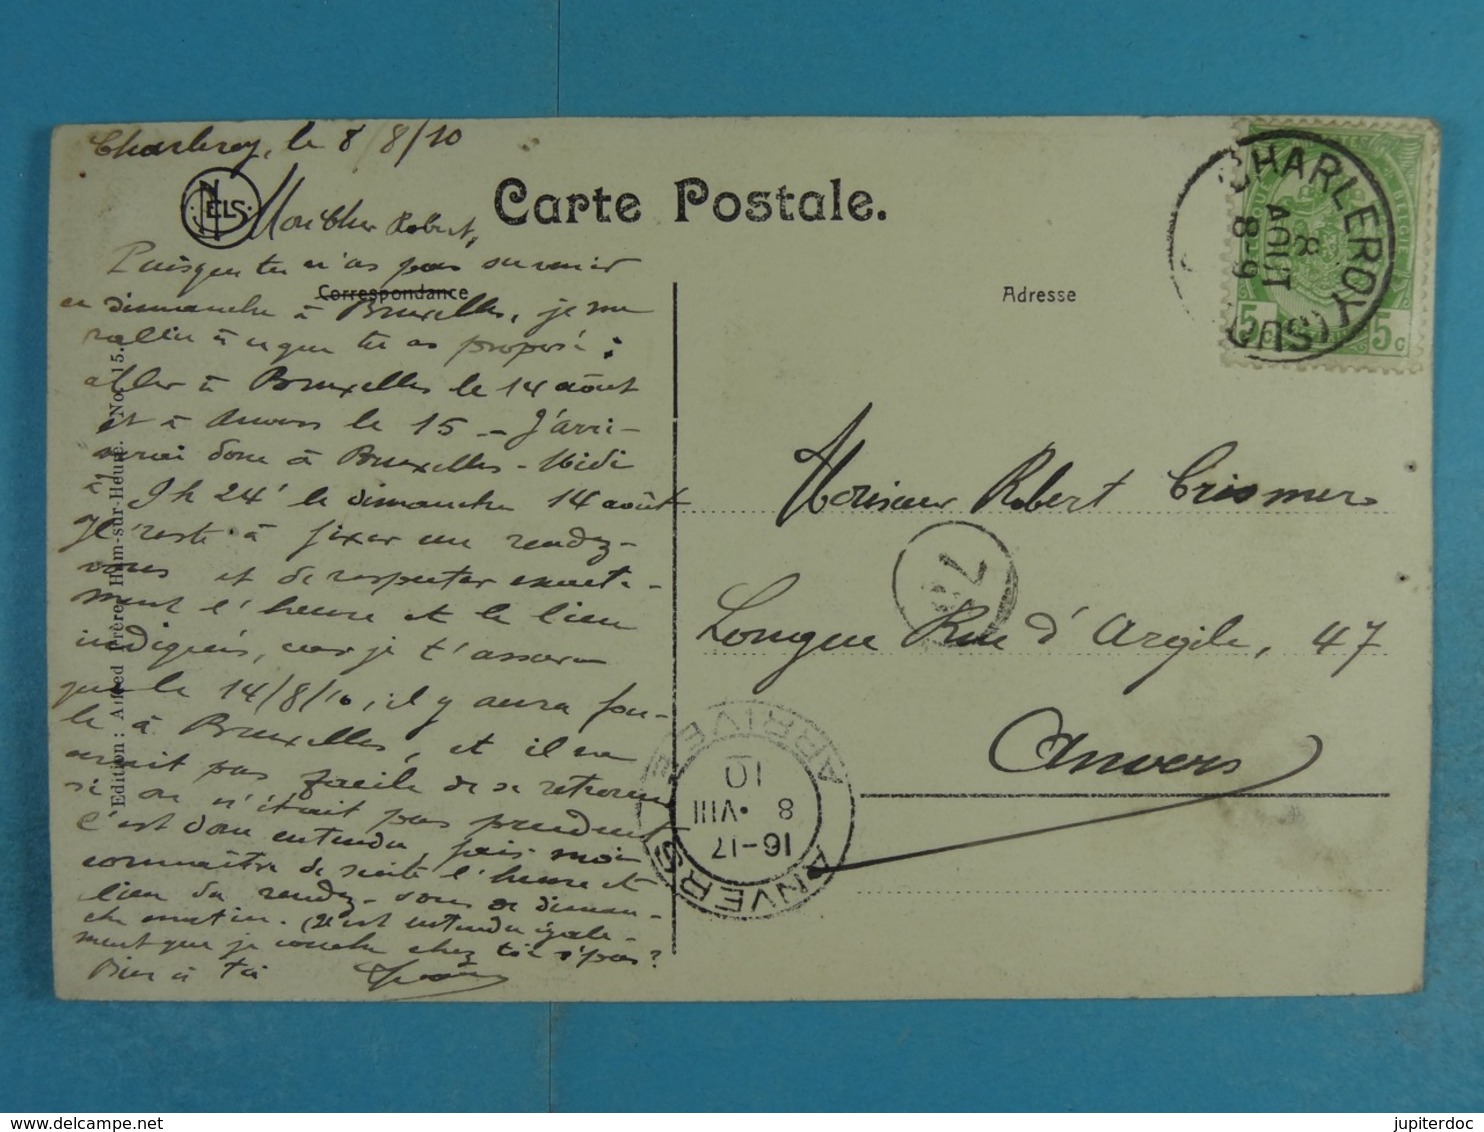 Charleroy, le 8/8/10
NELS
Mon Cher Robert,
Carte Postale.
Correspondance
Adresse
Puisque tu n'as pas su venir
ce dimanche à Bruxelles, je me
rallie à ce que tu as proposé :
aller à Bruxelles le 14 août
et à Anvers le 15 - J'arri-
verai donc à Bruxelles-Midi
à h 24' le dimanche 14 août
Il reste à fixer un rendez-
vous et de respecter exacte-
ment l'heure et le lieu
indiqués, car je t'assure
que le 14/8/10, il y aura fou-
le à Bruxelles, et il ne
serait pas facile de se retrouver
si on n'était pas prudent
C'est donc entendu, fais-moi
connaître de suite l'heure et
lieu du rendez-vous de diman-
che matin. C'est entendu égale-
ment que je couche chez toi n'pas?
Bien à toi
Edition: Alfred Frère, Ham-sur-Heure. No. 15.
CHARLEROY (SUD)
8-9
AOUT
8
5 c 5 c
Monsieur Robert Crismer
Longue Rue d'Argile, 47
Anvers
7
ANVERS ARRIVEE
16-17
8 •VIII
10
jupiterdoc